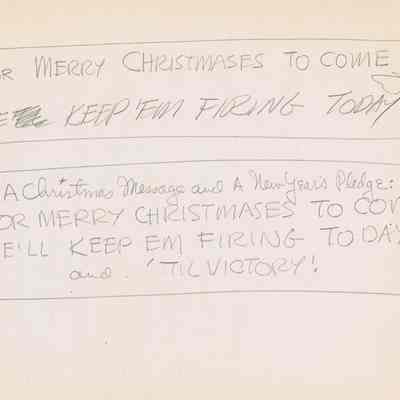 OR MERRY CHRISTMASES TO COME
E KEEP 'EM FIRING TODAY
A Christmas Message and A New Year's Pledge:
OR MERRY CHRISTMASES TO CO
E'LL KEEP EM FIRING TODAY
and. 'TIL VICTORY!